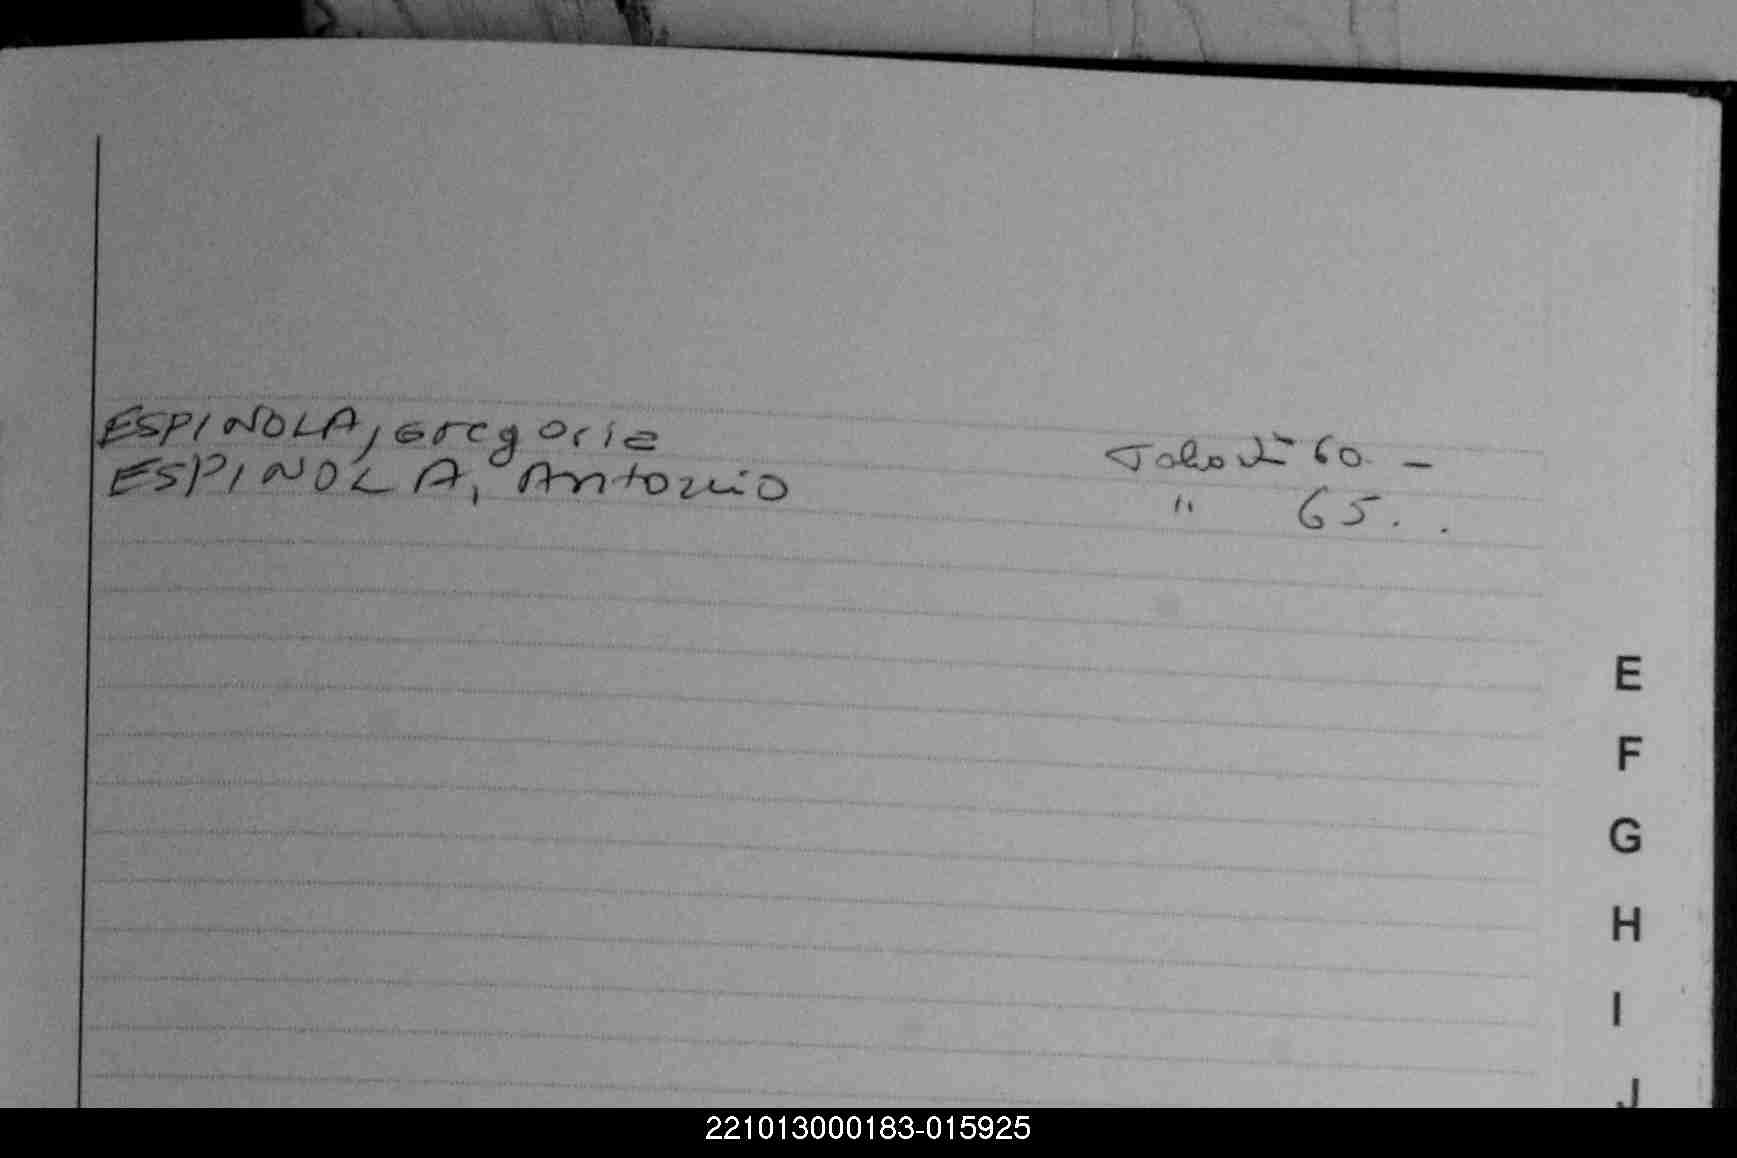 ESPINOLA, Gregoria
Folio Nº 60. -
ESPINOLA, Antonio
" 65. .
E
F
G
H
I
J
221013000183-015925